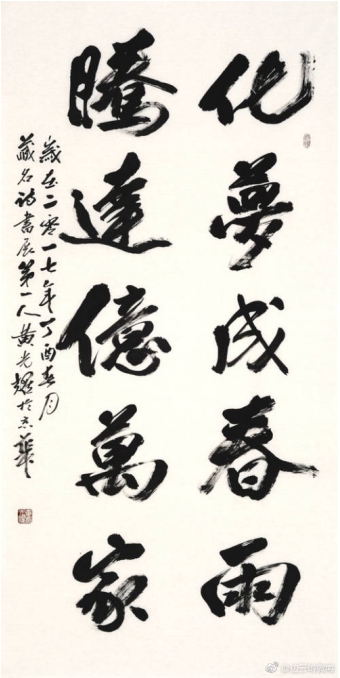 化夢成春雨
騰達億萬家
歲在二零一七年丁酉春月
藏名詩書展第一人黄光耀於京華